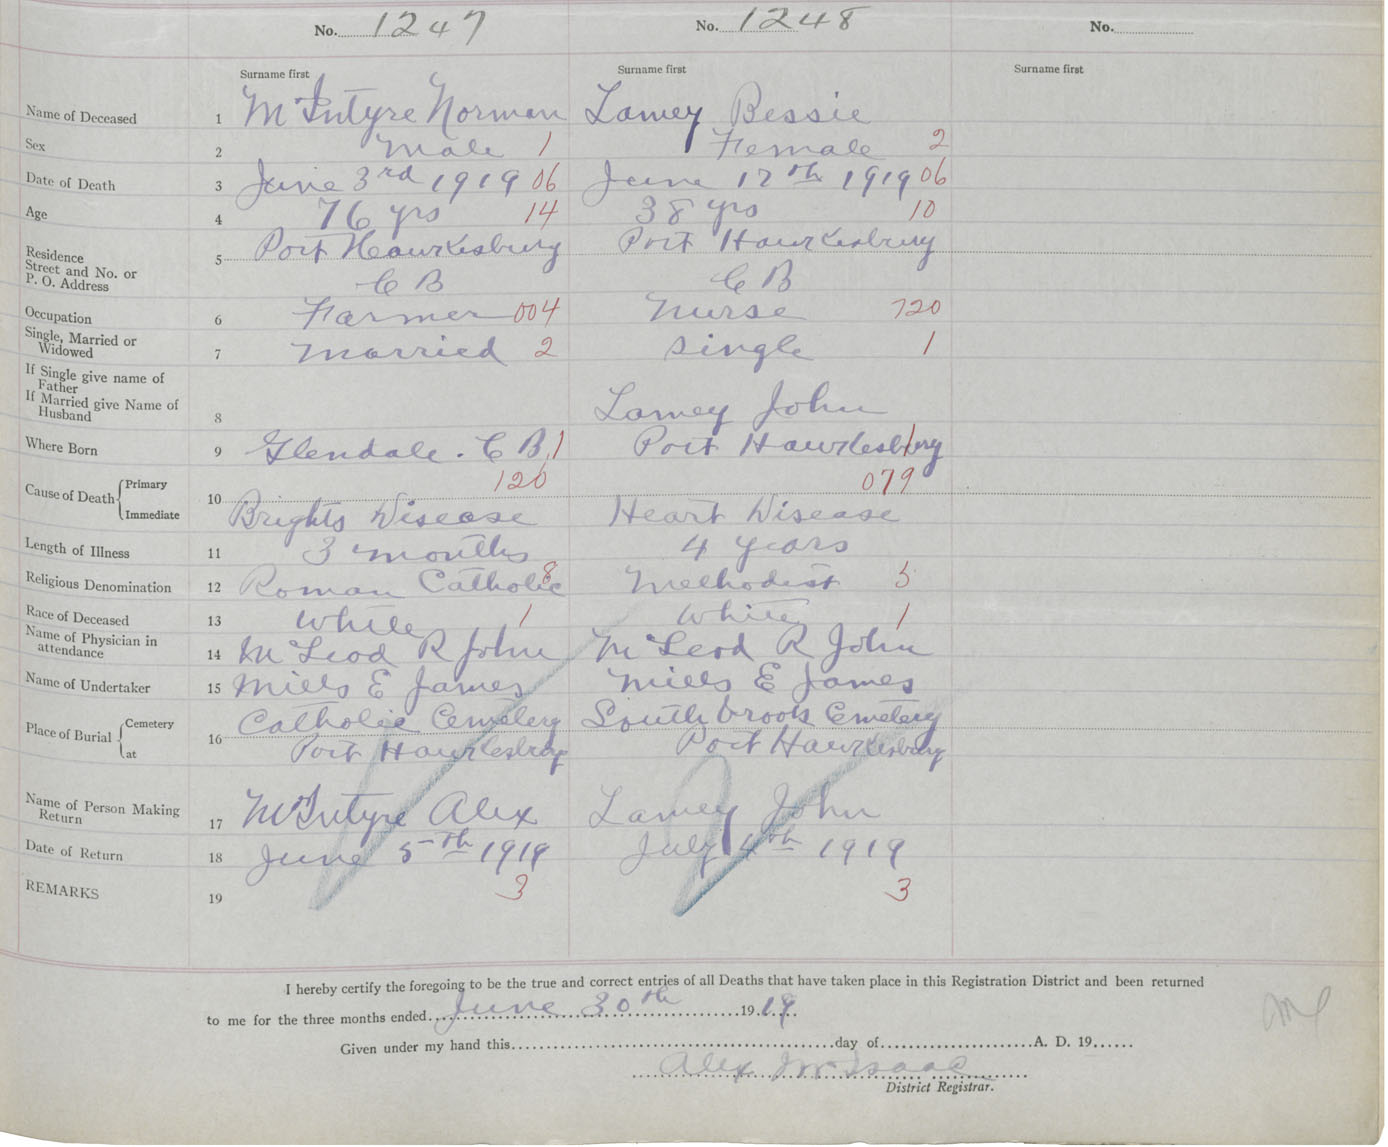 No. 1247 No. 1248 No.
Surname first Surname first Surname first
Name of Deceased 1 McIntyre Norman Lamey Bessie
Sex 2 Male 1 Female 2
Date of Death 3 June 3rd 1919 06 June 17th 1919 06
Age 4 76 yrs 14 38 yrs 10
Residence
Street and No. or
P. O. Address 5 Port Hawkesbury Port Hawkesbury
C B C B
Occupation 6 Farmer 004 Nurse 720
Single, Married or
Widowed 7 Married 2 Single 1
If Single give name of
Father
If Married give Name of
Husband 8 Lamey John
Where Born 9 Glendale. C B. 1 Port Hawkesbury 1
120 079
Cause of Death { Primary
Immediate 10 Brights Disease Heart Disease
Length of Illness 11 3 months 4 years
Religious Denomination 12 Roman Catholic 8 Methodist 5
Race of Deceased 13 White 1 White 1
Name of Physician in
attendance 14 McLeod R John McLeod R John
Name of Undertaker 15 Mills E James Mills E James
Place of Burial { Cemetery 16 Catholic Cemetery Southbrook Cemetery
at Port Hawkesbury Port Hawkesbury
Name of Person Making
Return 17 McIntyre Alex Lamey John
Date of Return 18 June 5th 1919 July 4th 1919
REMARKS 19 3 3
I hereby certify the foregoing to be the true and correct entries of all Deaths that have taken place in this Registration District and been returned
to me for the three months ended June 30th 1919.
Given under my hand this day of A. D. 19
Alex McIsaac
District Registrar.